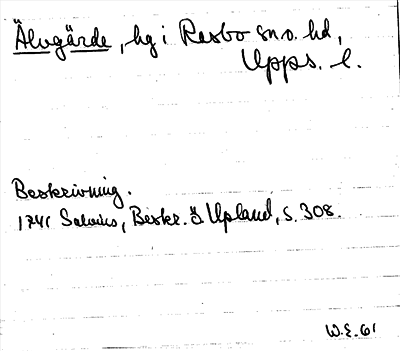 Älvgärde, hg i Rasbo sn o. hd,
Upps. l.
Beskrivning.
1741 Salvius, Beskr. ö Upland, s. 308.
W.E. 61